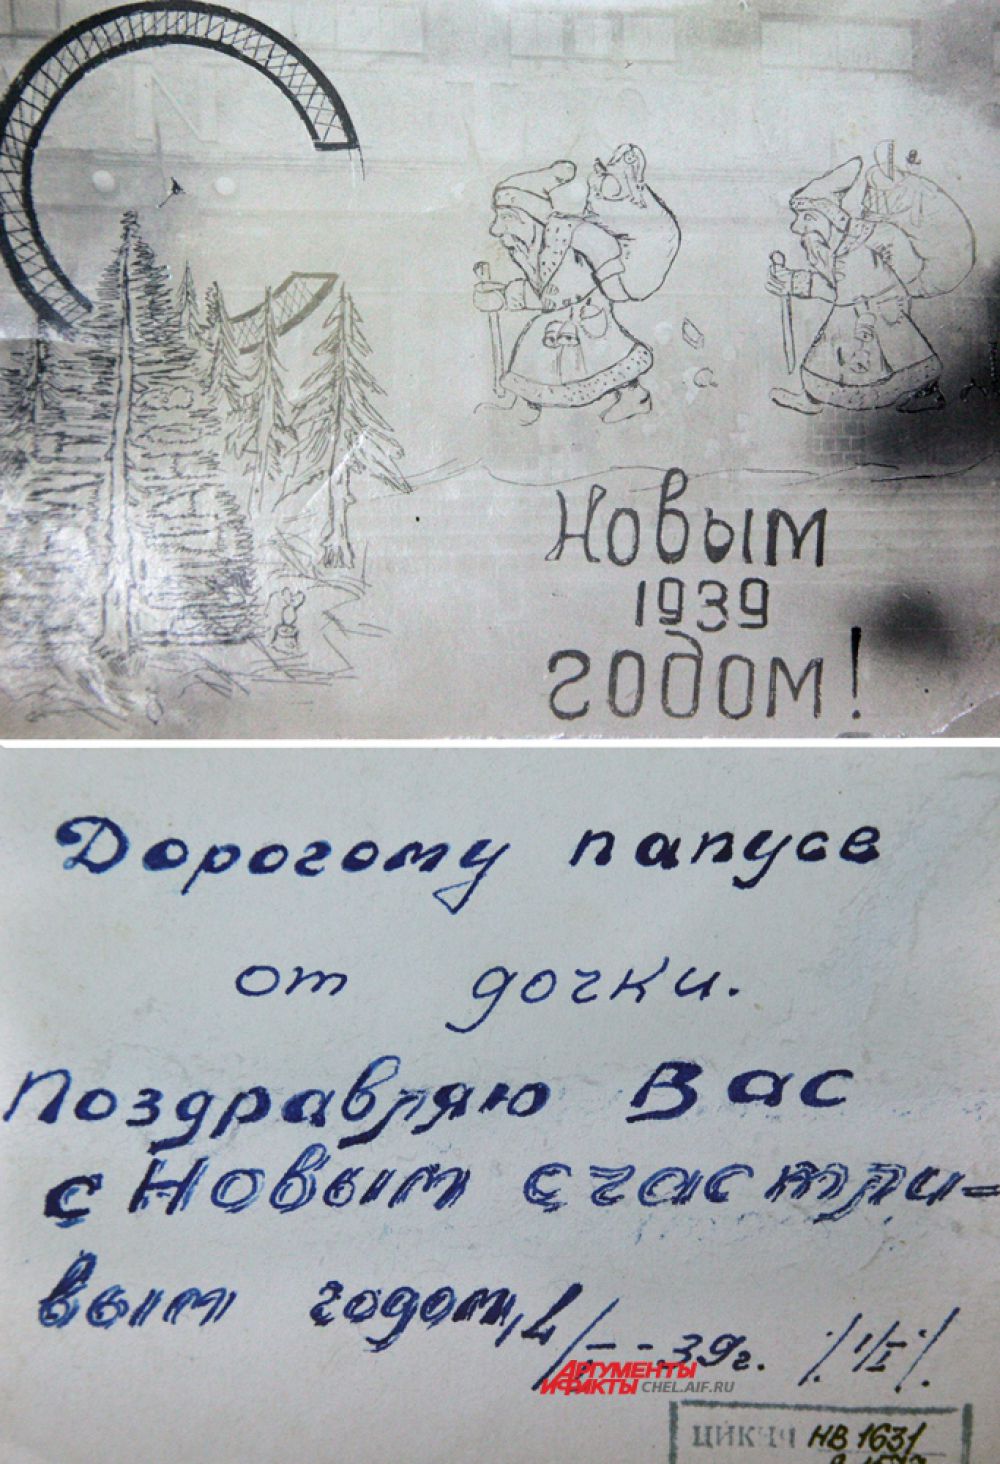 Новым
1939
годом!
Дорогому папусе
от дочки.
Поздравляю Вас
с Новым счастли=
вым годом,
39г. /1/I/.
АРГУМЕНТЫ
И ФАКТЫ CHEL.AIF.RU
НВ 1631